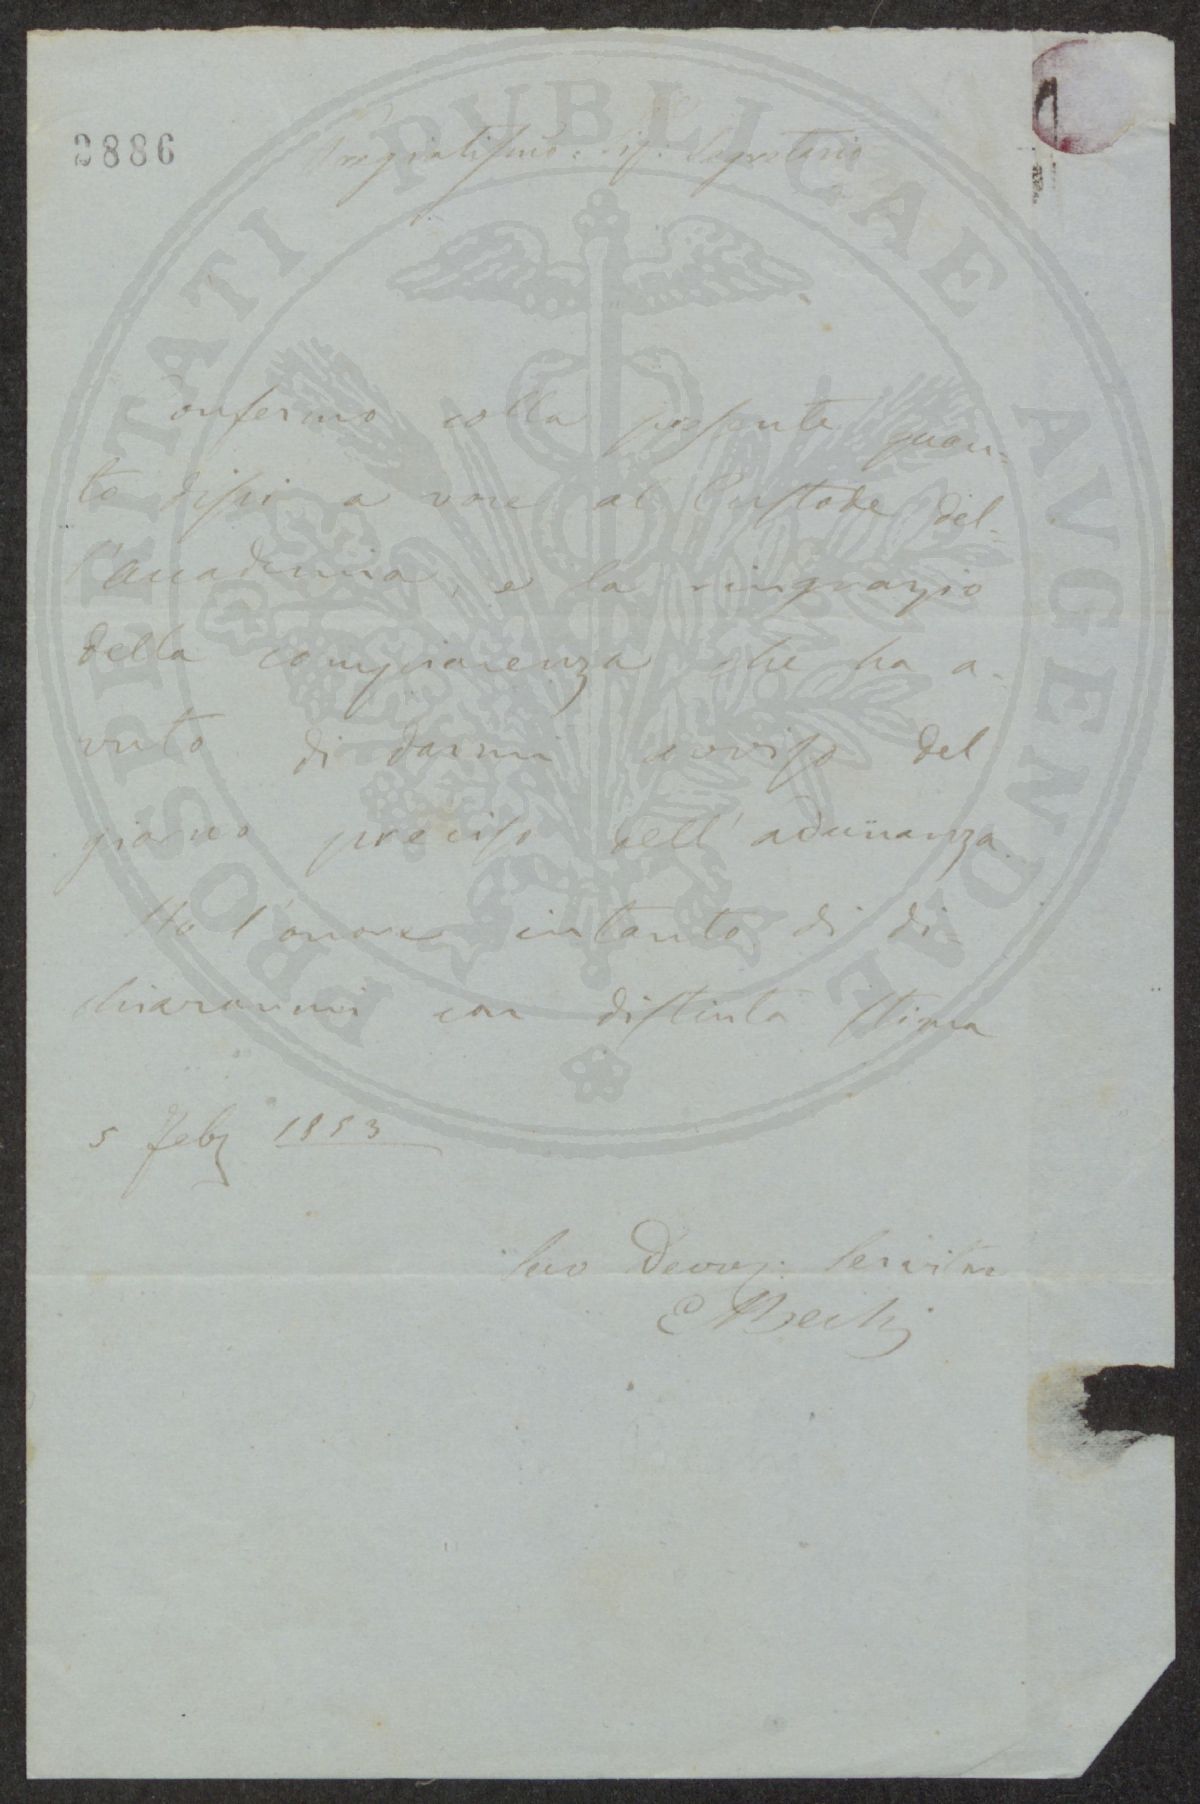 2886
Pregiatissmo. Sig. Segretario
Confermo colla presente quan-
to dissi a voce al Custode del-
l'Accademia, e la ringrazio
della compiacenza che ha a-
vuto di darmi avviso del
giorno preciso dell'adunanza.
Ho l'onore intanto di di-
chiararmi con distinta stima
5 Feb 1853
Suo Devoz: Servitre
E Bechi
PROSPERITATI PVBLICAE AVGENDAE